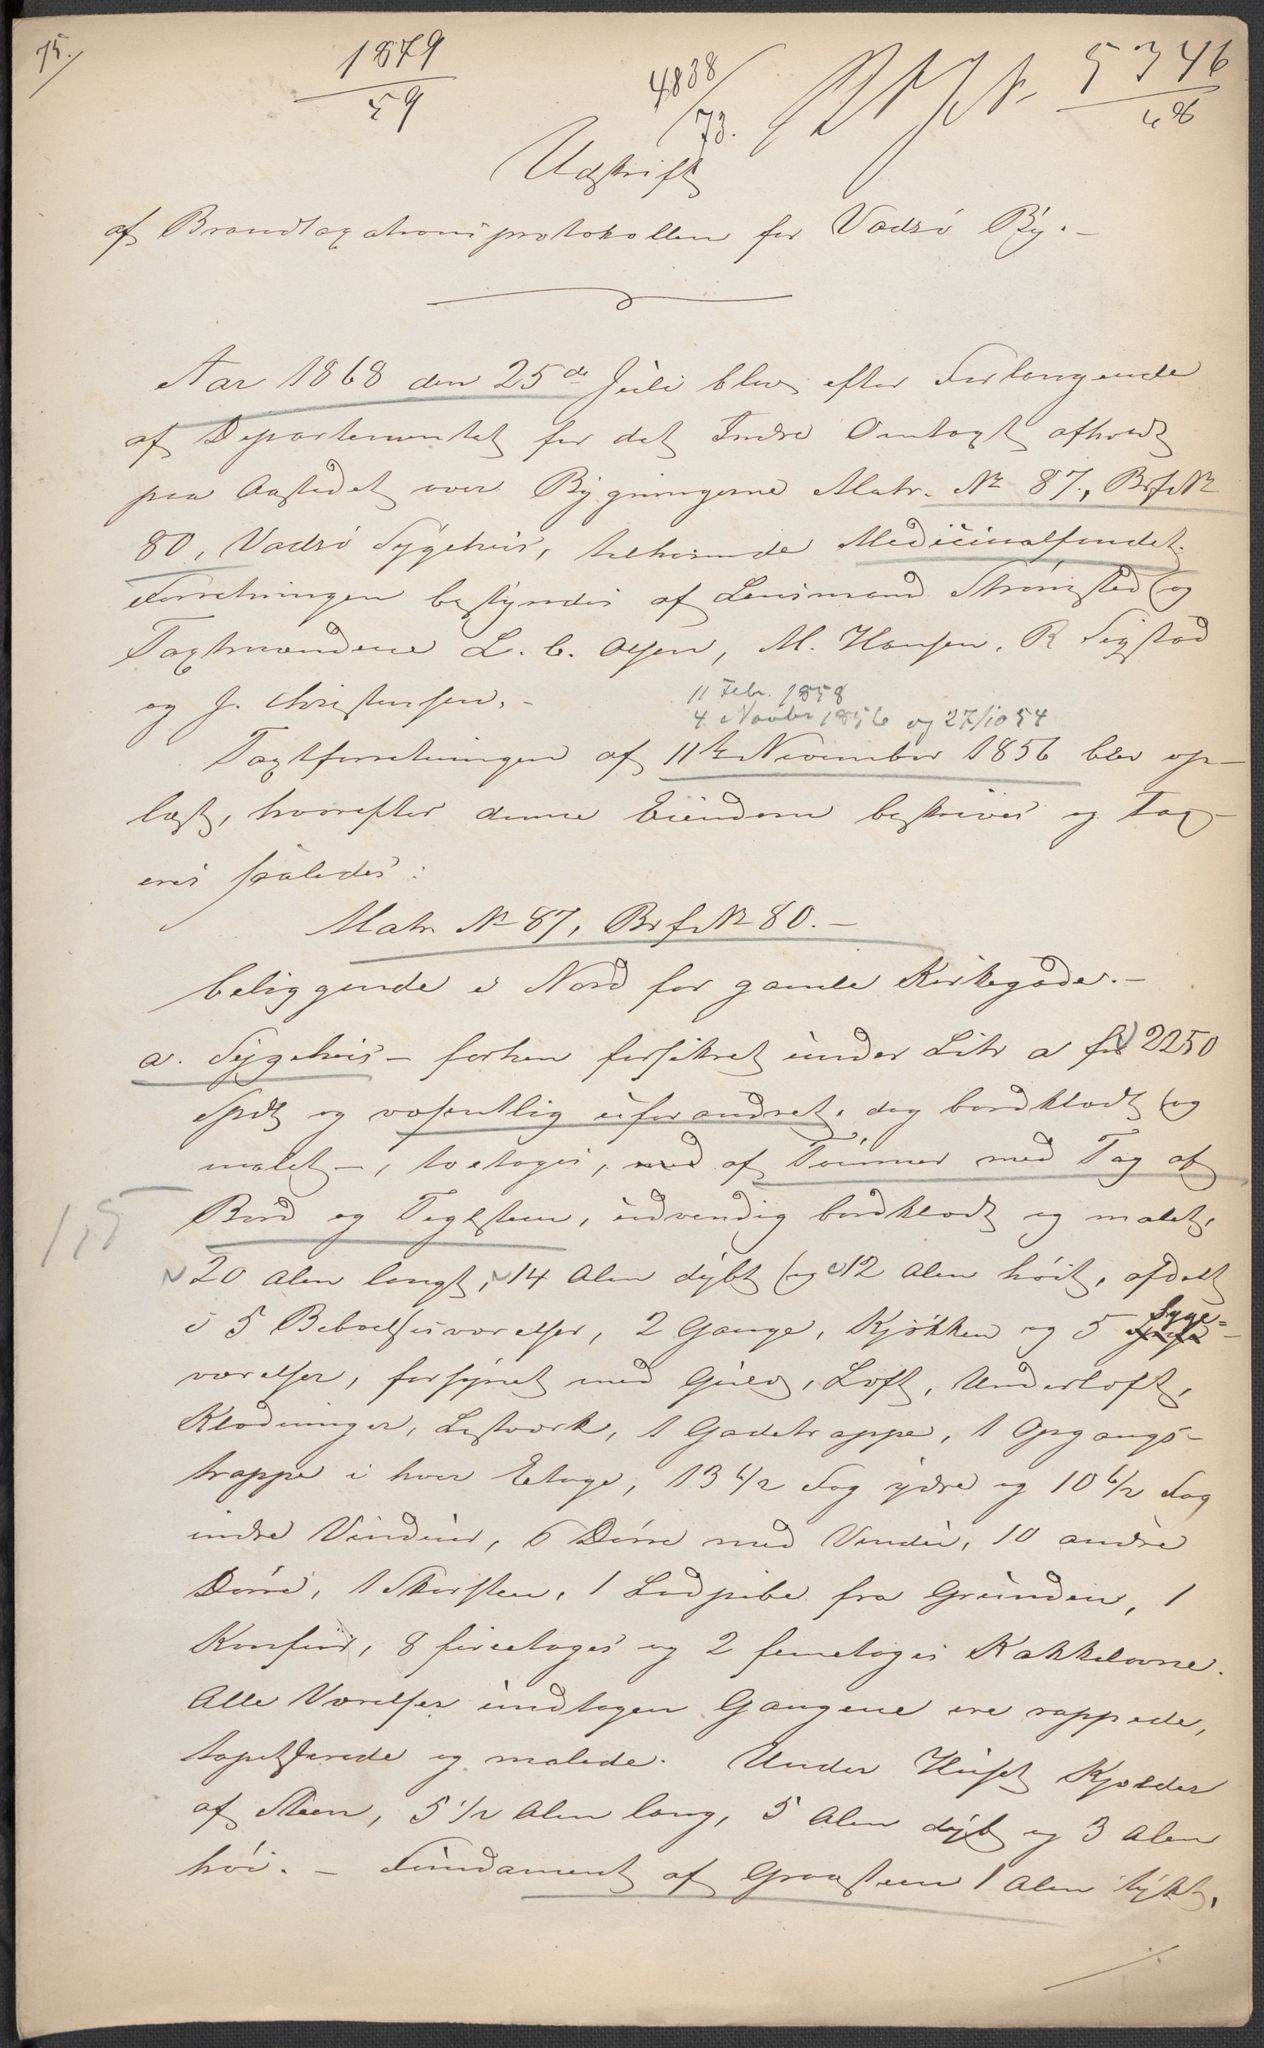 75.
1879
59
4838
73.
5346
68
Udskrift
af Brandtaxationsprotokollen for Vadsö By. -
Aar 1868 den 25de Juli blev efter Forlangende
af Departementet for det Indre Omtaxt afholdt
paa Aastedet over Bygningerne Matr. No 87, Brf. No
80, Vadsö Sygehuis, tilhørende Medicinalfondet.
Forretningen bestyredes af Lensmand Strömsted og
Taxtmændene L. C. Olsen, M. Hansen, R Sigstad
og J. Christensen. -
11 Febr. 1858
4 Novbr 1856 og 27/10 54
Taxtforretningen af 11te November 1856 blev op-
læst, hvorefter denne Eiendom beskrives og Tax-
eres saaledes:
Matr No 87, Brf. No 80. -
beliggende i Nord for gamle Kirkegade. -
a. Sygehuis - forhen forsikret under Litr a for 2250
Spdl og væsentlig uforandret, dog bordklædt og
malet -, toetages, med af Tömmer med Tag af
Bord og Teglsteen, udvendig bordklædt og malet,
1,5
20 Alen langt, 14 Alen dybt og 12 Alen höit, afdelt
i 5 Beboelsesværelser, 2 Gange, Kjökken og 5 Syge-
værelser, forsynet med Gulv, Loft, Underloft,
Klædninger, Listværk, 1 Gadetrappe, 1 Opgangs-
trappe i hver Etage, 13 6/2 Fag ydre og 10 6/2 Fag
indre Vinduer, 6 Dörre med Vindu, 10 andre
Dörre, 1 Skorsten, 1 Lodpibe fra Grunden, 1
Komfur, 8 fireetages og 2 femetages Kakkelovne.
Alle Værelser undtagen Gangene ere rappede,
tapetserede og malede. Under Huset Kjælder
af Steen, 5 1/2 Alen lang, 5 Alen dyb og 3 Alen
höi. - Fundament af Graasteen 1 Alen tykt,